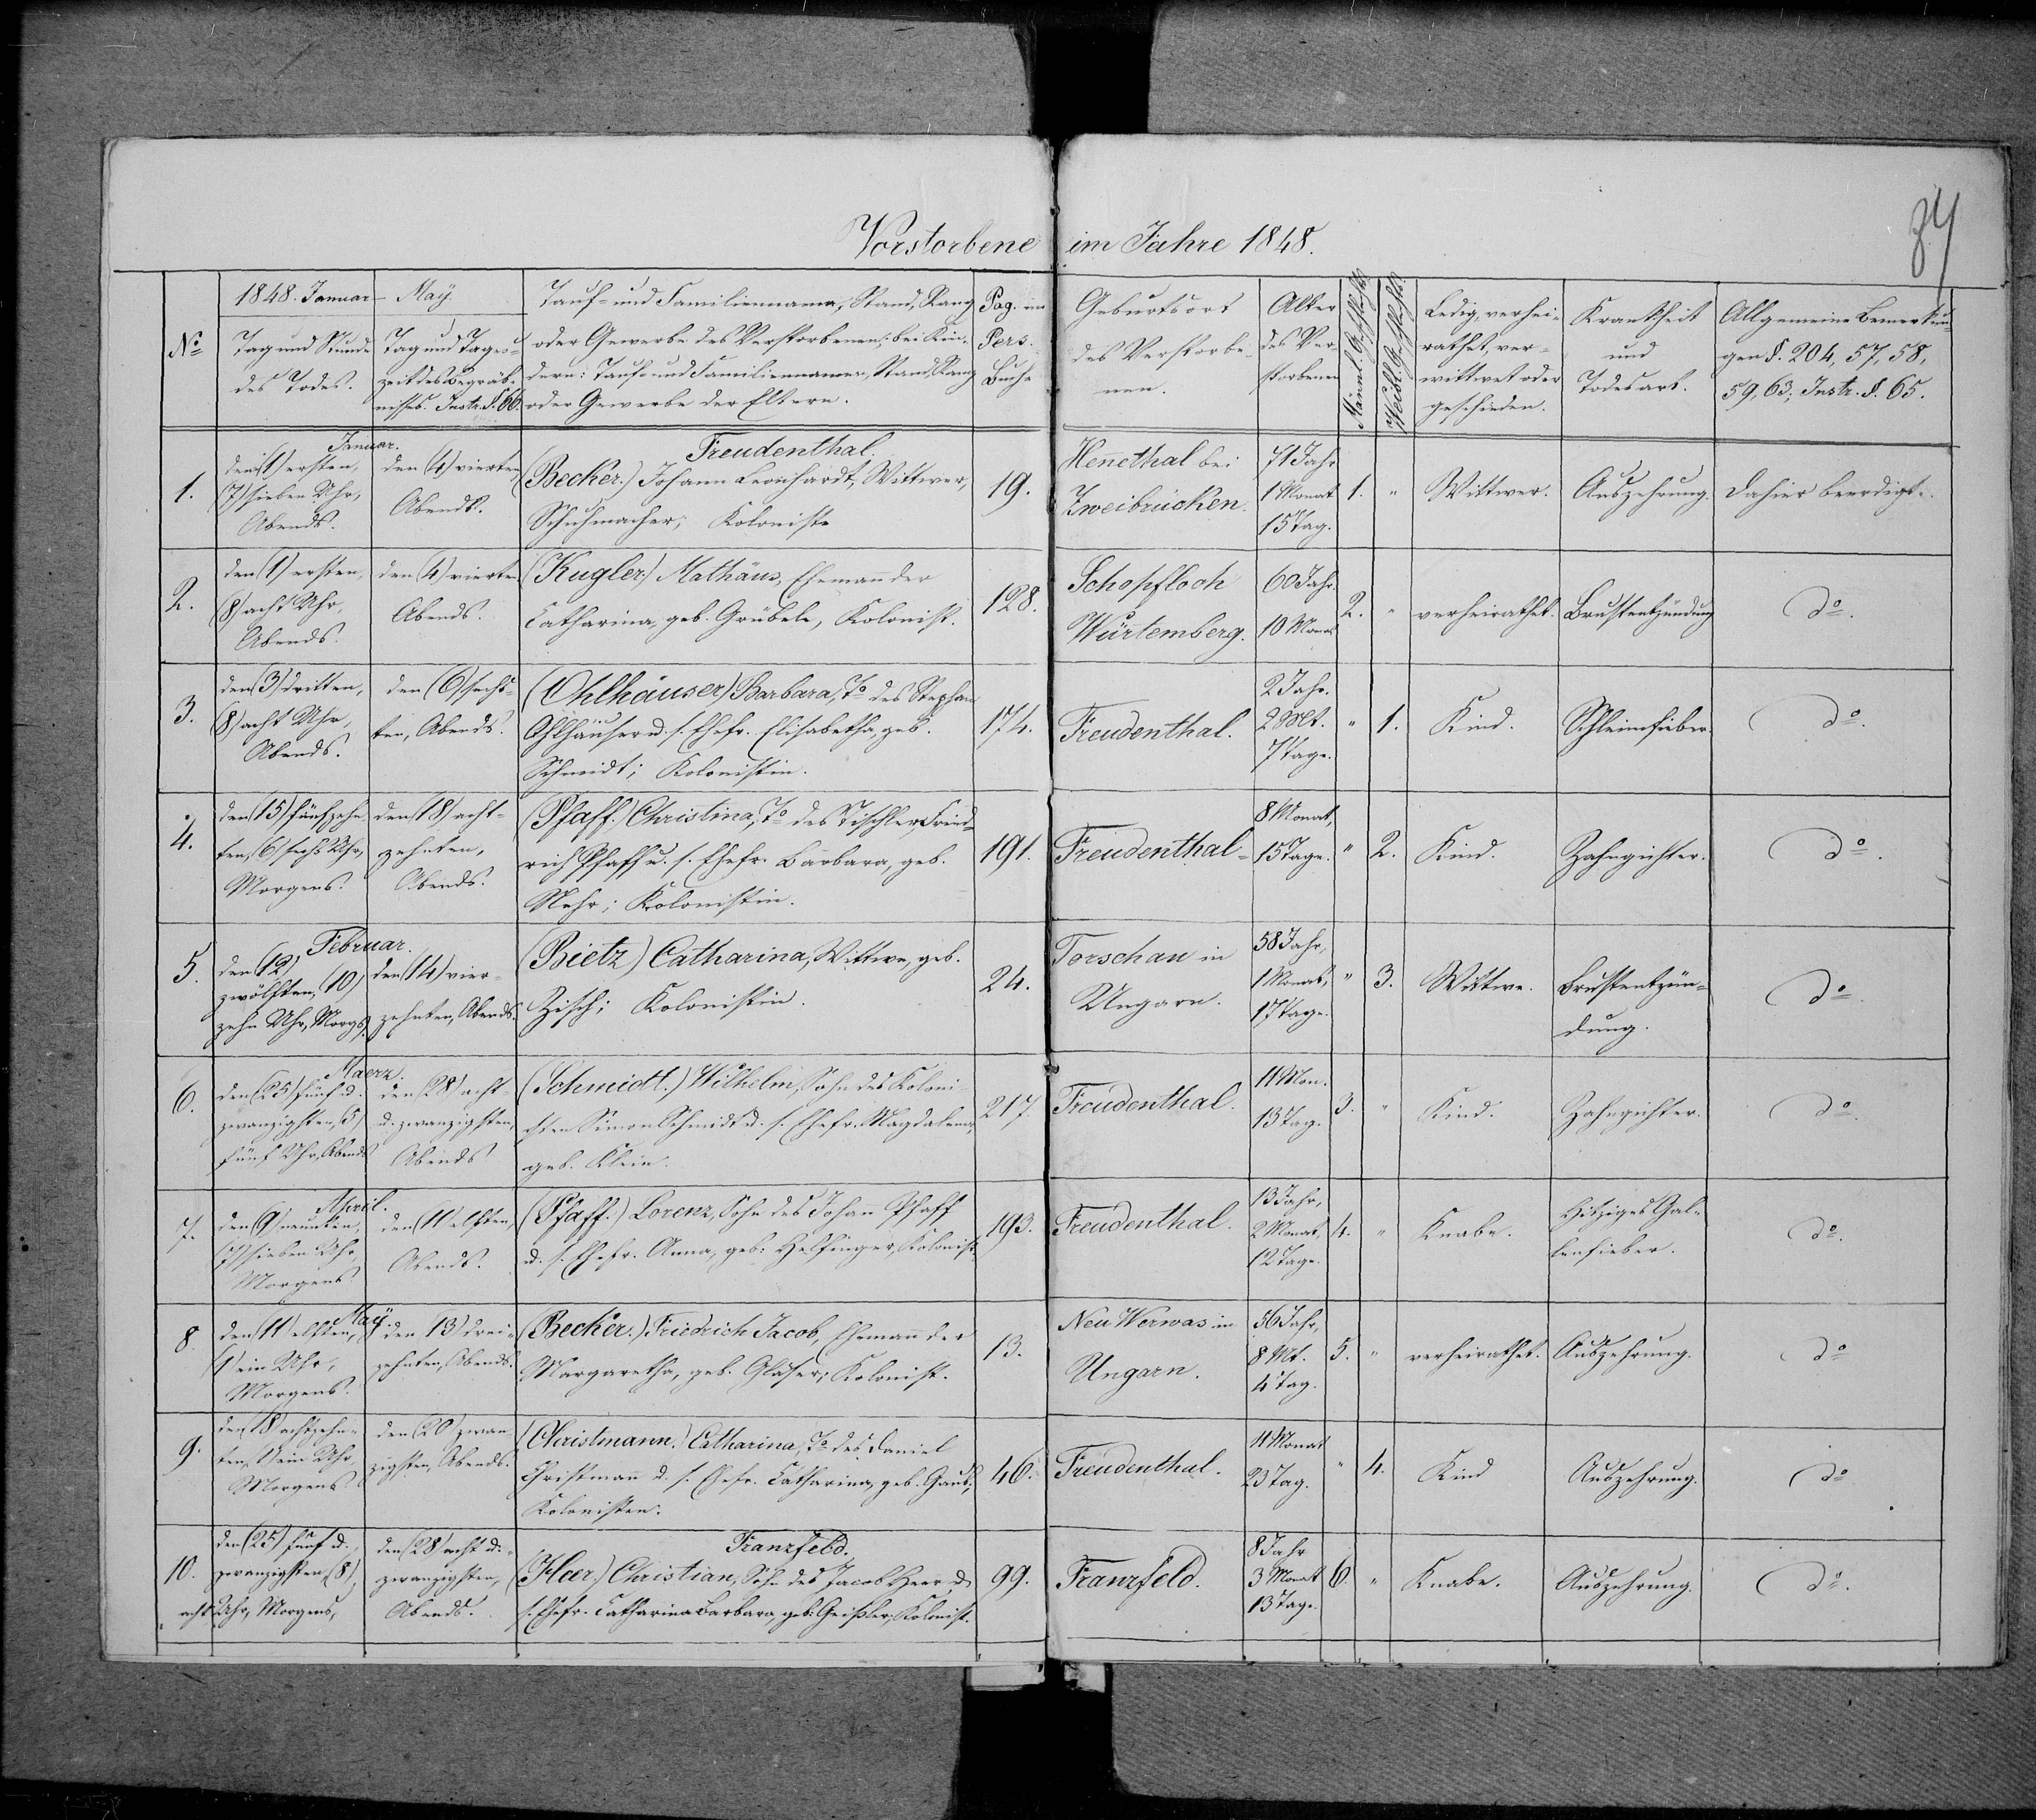 Verstorbene im Jahre 1848.
84
№
1848. Januar – Maÿ.
Tag und Stunde
des Todes.
Tag und Tages-
zeit des Begräb-
nisses. Instr. §. 66.
Tauf- und Familienname, Stand, Rang
oder Gewerbe des Verstorbenen; bei Kin-
dern: Tauf- und Familiennamen, Stand, Rang
oder Gewerbe der Eltern.
Pag. im
Pers.
Buch
Geburtsort
des Verstorbe-
nen.
Alter
des Ver-
storbenen
Männl. Geschlechts
Weibl. Geschlechts
Ledig, verhei-
rathet, ver-
wittwet oder
geschieden.
Krankheit
und
Todesart.
Allgemeine Bemerkun-
gen §. 204, 57, 58,
59, 63; Instr. §. 65.
Januar.
Freudenthal.
1.
den (1) ersten,
(7) sieben Uhr,
Abends.
den (4) vierten
Abends.
(Becker.) Johann Leonhardt, Wittwer,
Schuhmacher; Koloniste
19.
Hennethal bei
Zweibrücken.
71 Jahr
1 Monat
15 Tag.
1.
"
Wittwer.
Auszehrung.
Dahier beerdigt.
2.
den (1) ersten,
(8) acht Uhr,
Abends.
den (4) vierten
Abends.
(Kugler) Mathäus, Ehemann der
Catharina, geb. Grübele, Kolonist.
128.
Schopfloch
Würtemberg.
60 Jahr.
10 Monat
2.
"
verheirathet.
Brustentzündung
do.
3.
den (3) dritten,
(8) acht Uhr,
Abends.
den (6) sechs-
ten, Abends.
(Ohlhäuser) Barbara, To. des Stephan
Ohlhäuser u. s. Ehefr. Elisabetha, geb.
Schmidt; Kolonistin.
174.
Freudenthal.
2 Jahr.
2 Mt.
7 Tage.
"
1.
Kind.
Schleimfieber.
do.
4.
den (15) fünfzehn-
ten, (6) sechs Uhr,
Morgens.
den (18) acht-
zehnten,
Abends.
(Pfaff.) Christina, To. des Tischlers Fried-
rich Pfaff u. s. Ehefr. Barbara, geb.
Nehr; Kolonistin.
191.
Freudenthal
8 Monat,
15 Tage.
"
2.
Kind.
Zahngichter.
do.
Februar.
5.
den (12)
zwölften, (10)
zehn Uhr, Morgs.
den (14) vier-
zehnten, Abends.
(Bietz) Catharina, Wittwe, geb.
Zisch; Kolonistin.
24.
Torschau in
Ungarn.
58 Jahr,
1 Monat,
17 Tage.
"
3.
Wittwe.
Brustentzün-
dung.
do.
Maerz.
6.
den (25) fünf u.
zwanzigsten, (5)
fünf Uhr, Abends
den (28) acht
u. zwanzigsten,
Abends
(Schmidt.) Wilhelm, Sohn des Koloni-
sten Simon Schmidt u. s. Ehefr. Magdalena,
geb. Klein.
217.
Freudenthal.
11 Mon.
13 Tag.
3.
"
Kind.
Zahngichter.
do.
April.
7.
den (9) neunten,
(7) sieben Uhr,
Morgens
den (11) elften,
Abends.
(Pfaff.) Lorenz, Sohn des Johan Pfaff
u. s. Ehefr. Anna, geb. Helfinger, Kolonist.
193.
Freudenthal.
13 Jahr,
2 Monat,
12 Tage.
4.
"
Knabe.
Hitziges Gal-
lenfieber.
do.
Maÿ
8.
den (11) elften,
(1) ein Uhr,
Morgens.
den (13) drei-
zehnten, Abends.
(Becker.) Friedrich Jacob, Ehemann der
Margaretha, geb. Glaser; Kolonist.
13.
Neu Werwas in
Ungarn.
56 Jahr,
8 Mt.
4 Tag.
5.
"
verheirathet.
Auszehrung.
do
9.
den (18) achtzehn-
ten, (1) ein Uhr,
Morgens
den (20) zwan-
zigsten, Abends.
(Christmann.) Catharina, To. des Daniel
Christmann u. s. Ehefr. Catharina, geb. Gaub;
Kolonisten.
46.
Freudenthal.
11 Monat
23 Tag.
"
4.
Kind
Auszehrung.
do
Franzfeld.
10.
den (25) fünf u.
zwanzigsten, (8)
acht Uhr, Morgens,
den (28) acht u.
zwanzigsten,
Abends.
(Heer.) Christian, Sohn des Jacob Heer u.
s. Ehefr. Catharina Barbara, geb. Geißler; Kolonist.
99.
Franzfeld.
8 Jahr
3 Monat
13 Tage.
6.
"
Knabe.
Auszehrung.
do.